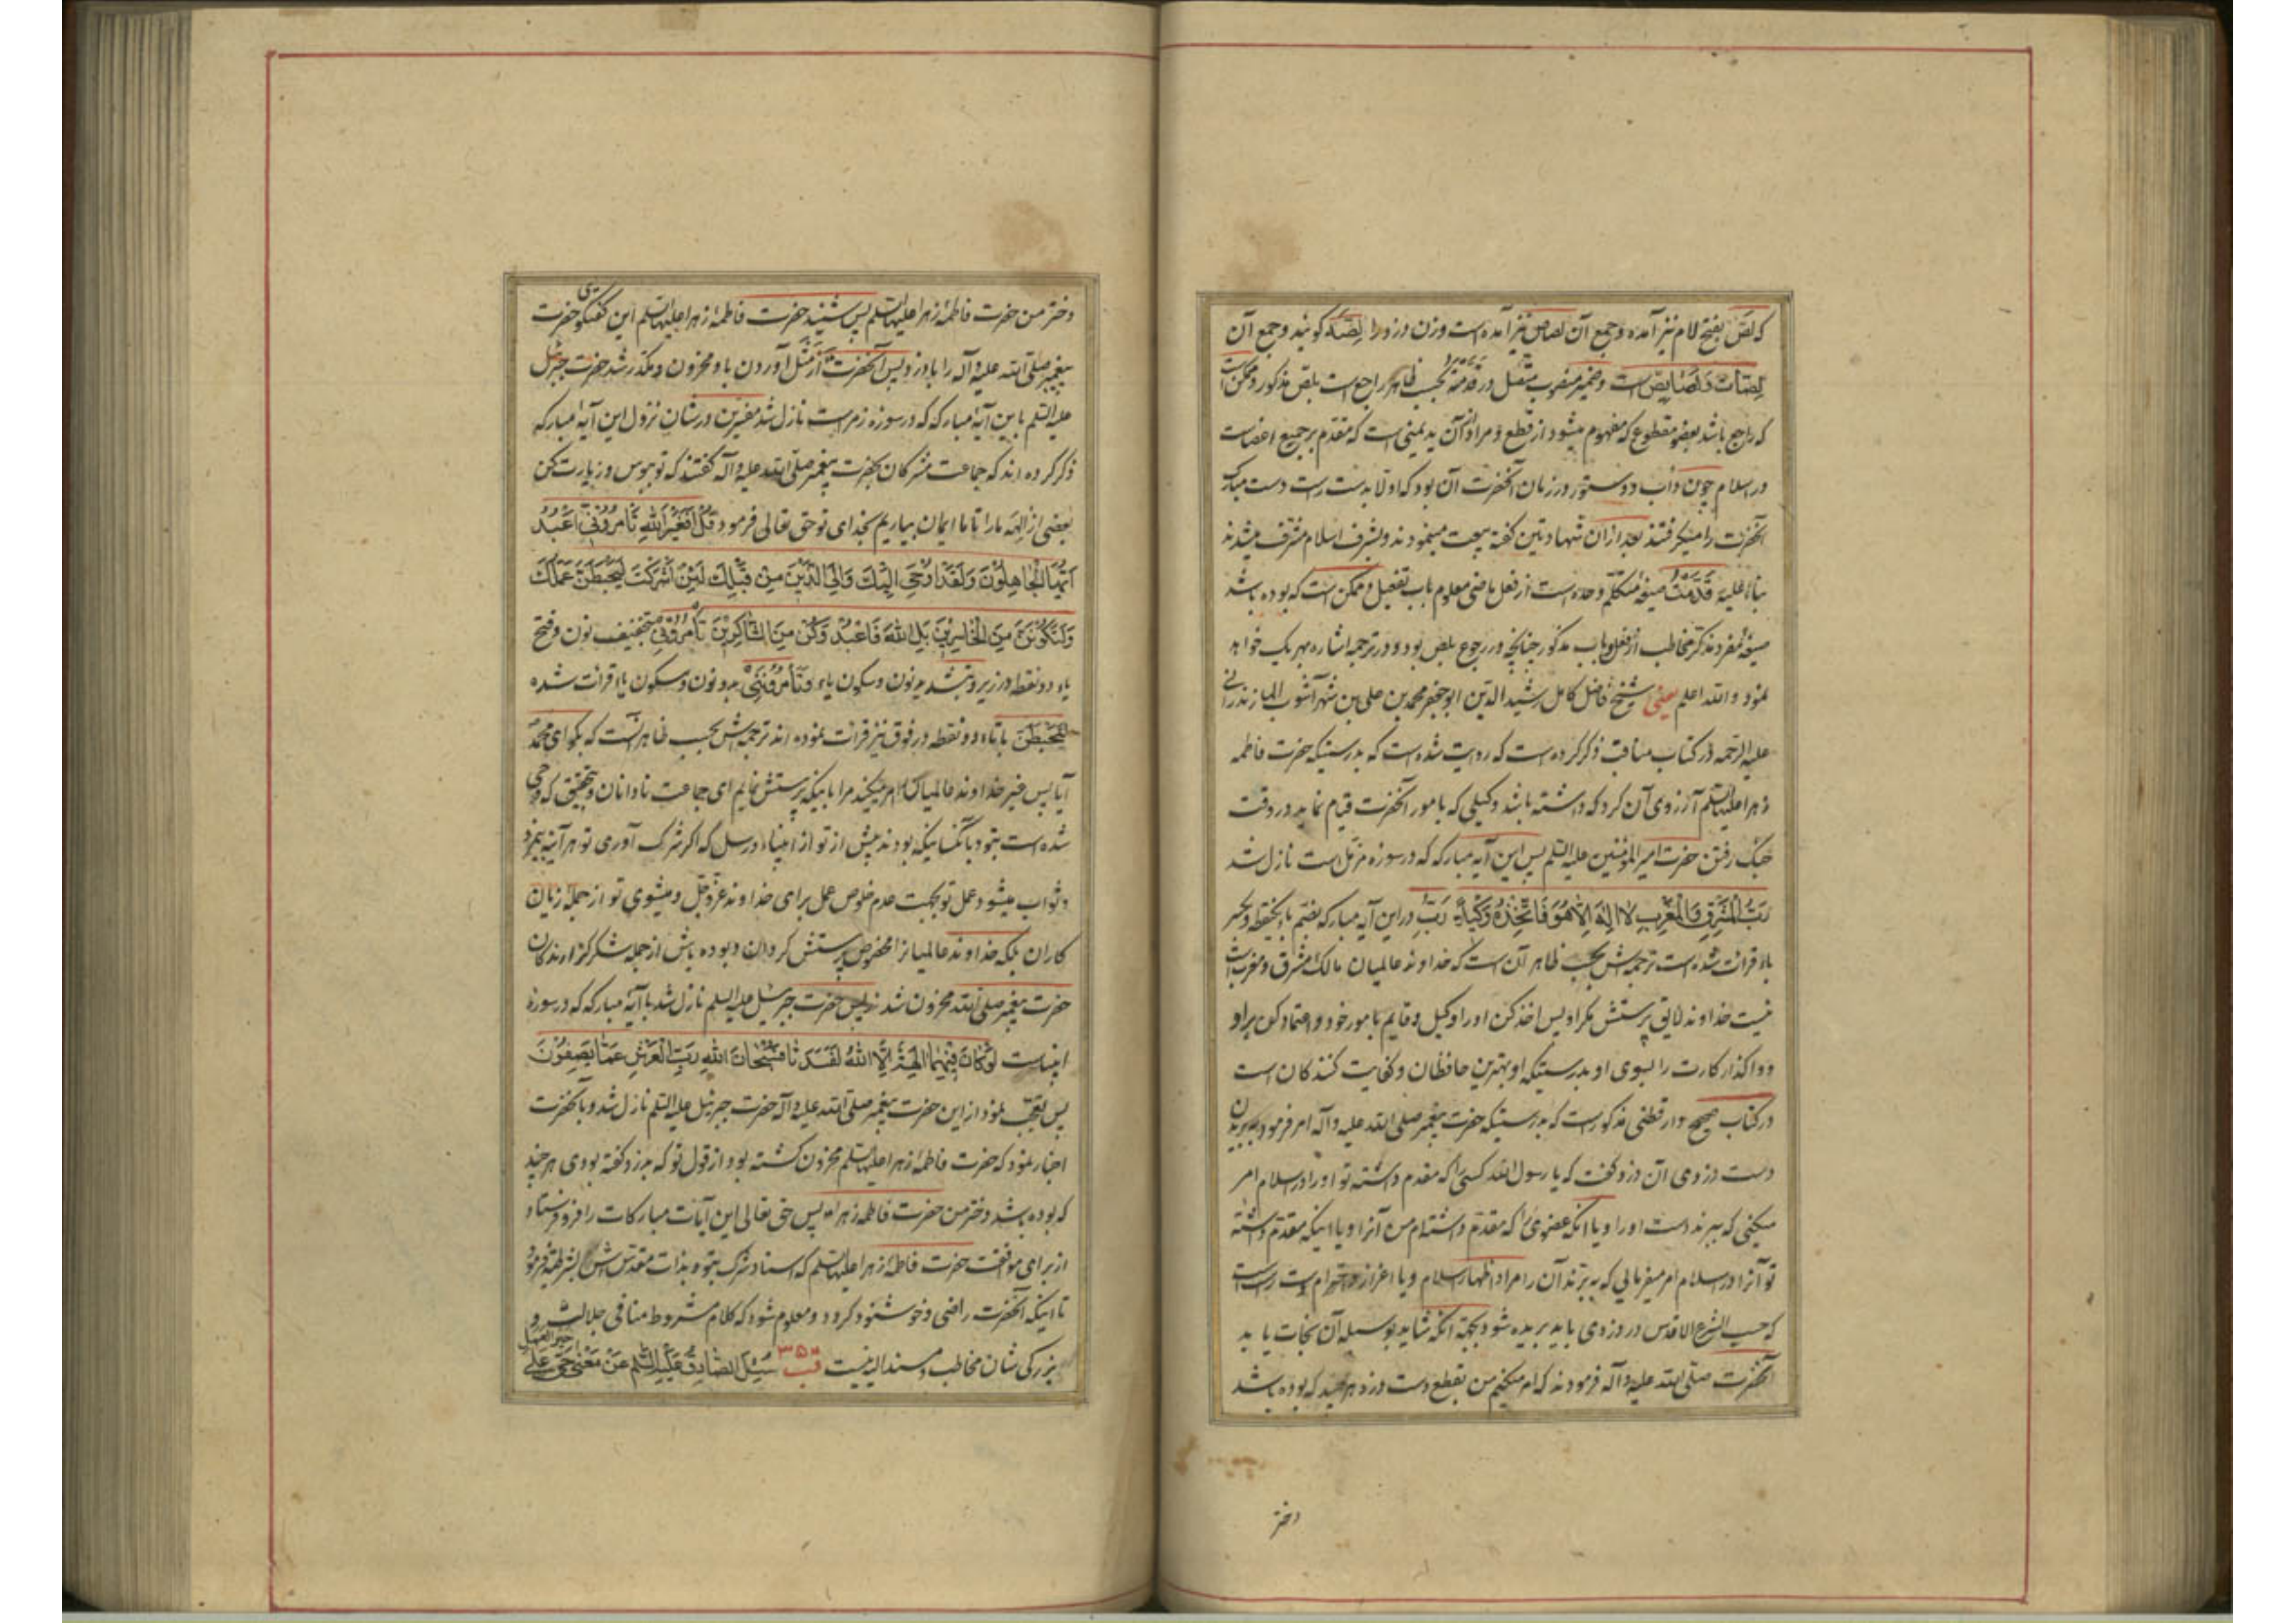 که لَصّ بفتح لام نیز آمده و جمع آن لصاص نیز آمده است و زن دزد را لِصَّه گویند و جمع آن
لِصّات و لَصَایِص است و ضمیر منصوب متصل در قدمته بحسب ظاهر راجع است بلص مذکور و ممکن است
که راجع باشد بعضو مقطوع که مفهوم میشود از قطع و مراد از آن ید یمنی است که مقدم بر جمیع اعضاست
در اسلام چون داب و دستور در زمان آنحضرت آن بود که اولا بدست راست دست مبارک
آنحضرت را میگرفتند بعد ازان شهادتین گفته بیعت مینمودند و بشرف اسلام مشرف میشدند
بناءً علیه قَدَّمْتُ صیغه متکلم وحده است از فعل ماضی معلوم باب تفعیل و ممکن است که بوده باشد
صیغه مفرد مذکر مخاطب از فعل و باب مذکور چنانچه در رجوع بلص بود و در ترجمه اشاره بهر یک خواهد
نمود و الله اعلم یعنی شیخ فاضل کامل رشید الدین ابو جعفر محمد بن علی بن شهر آشوب المازندرانی
علیه الرحمه در کتاب مناقب ذکر کرده است که روایت شده است که بدرستیکه حضرت فاطمه
زهرا علیها السلم آرزوی آن کرد که داشته باشد وکیلی که بامور آنحضرت قیام نماید در وقت
جنگ رفتن حضرت امیر المؤمنین علیه السلم پس این آیه مبارکه که در سوره مزمل است نازل شد
رَبُّ الْمَشْرِقِ وَالْمَغْرِبِ لَا اِلٰهَ اِلَّا هُوَ فَاتَّخِذْهُ وَكِيلًا رَبّ در این آیه مبارکه بضم باء یکنقطه و بکسر
باء قرائت شده است ترجمه اش بحسب ظاهر آن است که خداوند عالمیان مالک مشرق و مغرب است
نیست خداوند لایق پرستش مگر او پس اخذ کن او را وکیل و قایم بامور خود و اعتماد کن بر او
و واگذار کارت را بسوی او بدرستیکه او بهترین حافظان و کفایت کنندگان است
در کتاب صحیح دارقطنی مذکور است که بدرستیکه حضرت پیغمبر صلی الله علیه و آله امر فرمود ببریدن
دست دزدی آن دزد گفت که یا رسول الله کسی را که مقدم داشته تو او را در اسلام امر
میکنی که ببرند دست او را و یا آنکه عضوی را که مقدم داشته‌ام من آنرا و یا اینکه مقدم داشته
تو آنرا در اسلام امر میفرمایی که ببرند آن را مراد اظهار اسلام و یا اعزاز و احترام دست راست است
که حسب الشرع الاقدس در دزدی باید بریده شود بجهة آنکه شاید بوسیله آن نجات یابد
آنحضرت صلی الله علیه و آله فرمودند که امر میکنم من بقطع دست دزد هر چند که بوده باشد
دختر
دختر من حضرت فاطمه زهرا علیها السلم پس شنید حضرت فاطمه زهرا علیها السلم این گفتگوی حضرت
پیغمبر صلی الله علیه و آله را با دزد پس آنحضرت از مَثَل آوردن باو محزون و مکدر شد حضرت جبرئیل
علیه السلم باین آیه مبارکه که در سوره زمر است نازل شد مفسرین در شان نزول این آیه مبارکه
ذکر کرده اند که جماعت مشرکان بحضرت پیغمبر صلی الله علیه و آله گفتند که تو ببوس و زیارت کن
بعضی از الهه ما را تا ما ایمان بیاریم بخدای تو حق تعالی فرمود قُلْ اَفَغَيْرَ اللّٰهِ تَأْمُرُونِّي اَعْبُدُ
اَيُّهَا الْجَاهِلُونَ وَلَقَدْ اُوحِيَ اِلَيْكَ وَاِلَى الَّذِينَ مِنْ قَبْلِكَ لَئِنْ اَشْرَكْتَ لَيَحْبَطَنَّ عَمَلُكَ
وَلَتَكُونَنَّ مِنَ الْخَاسِرِينَ بَلِ اللّٰهَ فَاعْبُدْ وَكُنْ مِنَ الشَّاكِرِينَ تأمرونی بتخفیف نون و فتح
یاء دو نقطه در زیر و بتشدید نون و سکون یاء و تأمروننی بدو نون و سکون یا قرائت شده
لتحبطن با تاء دو نقطه در فوق نیز قرائت نموده اند ترجمه اش بحسب ظاهر آنست که بگو ای محمد
آیا پس غیر خداوند عالمیان امر میکنید مرا باینکه پرستش نمایم ای جماعت نادانان و بتحقیق که وحی
شده است بتو و بآنکسانیکه بودند پیش از تو از انبیاء و رسل که اگر شرک آوری تو هر آینه بیمزد
و ثواب میشود عمل تو بجهت عدم خلوص عمل برای خداوند عزّ و جلّ و میشوی تو از جمله زیان
کاران بلکه خداوند عالمیانرا مخصوص پرستش گردان و بوده باش از جمله شکر گزارندگان
حضرت پیغمبر صلی الله محزون شد پس حضرت جبرئیل علیه السلم نازل شد با آیه مبارکه که در سوره
انبیاست لَوْ كَانَ فِيهِمَا آلِهَةٌ اِلَّا اللّٰهُ لَفَسَدَتَا فَسُبْحَانَ اللّٰهِ رَبِّ الْعَرْشِ عَمَّا يَصِفُونَ
پس تعجب نمود از این حضرت پیغمبر صلی الله علیه و آله حضرت جبرئیل علیه السلم نازل شد و بآنحضرت
اخبار نمود که حضرت فاطمه زهرا علیها السلم محزون گشته بود از قول تو که بدزد گفته بودی هر چند
که بوده باشد دختر من حضرت فاطمه زهراء پس حق تعالی این آیات مبارکات را فرو فرستاد
از برای موافقت حضرت فاطمه زهرا علیها السلم که اسناد شرک بتو و بذات مقدس اش بشرطیه فرمود
تا اینکه آنحضرت راضی و خوشنود گردد و معلوم شود که کلام مشروط منافی جلالت و
بزرگی شان مخاطب و مسند الیه نیست قب ۳۵ سُئِلَ الصَّادِقُ عَلَيْهِ السَّلَمُ عَنْ مَعْنٰى حَيَّ عَلٰى
خیر العمل